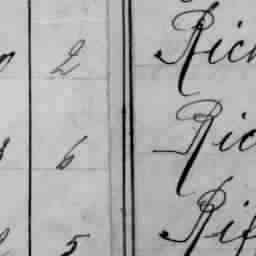 2 Rich
6 Ric
5 Rif